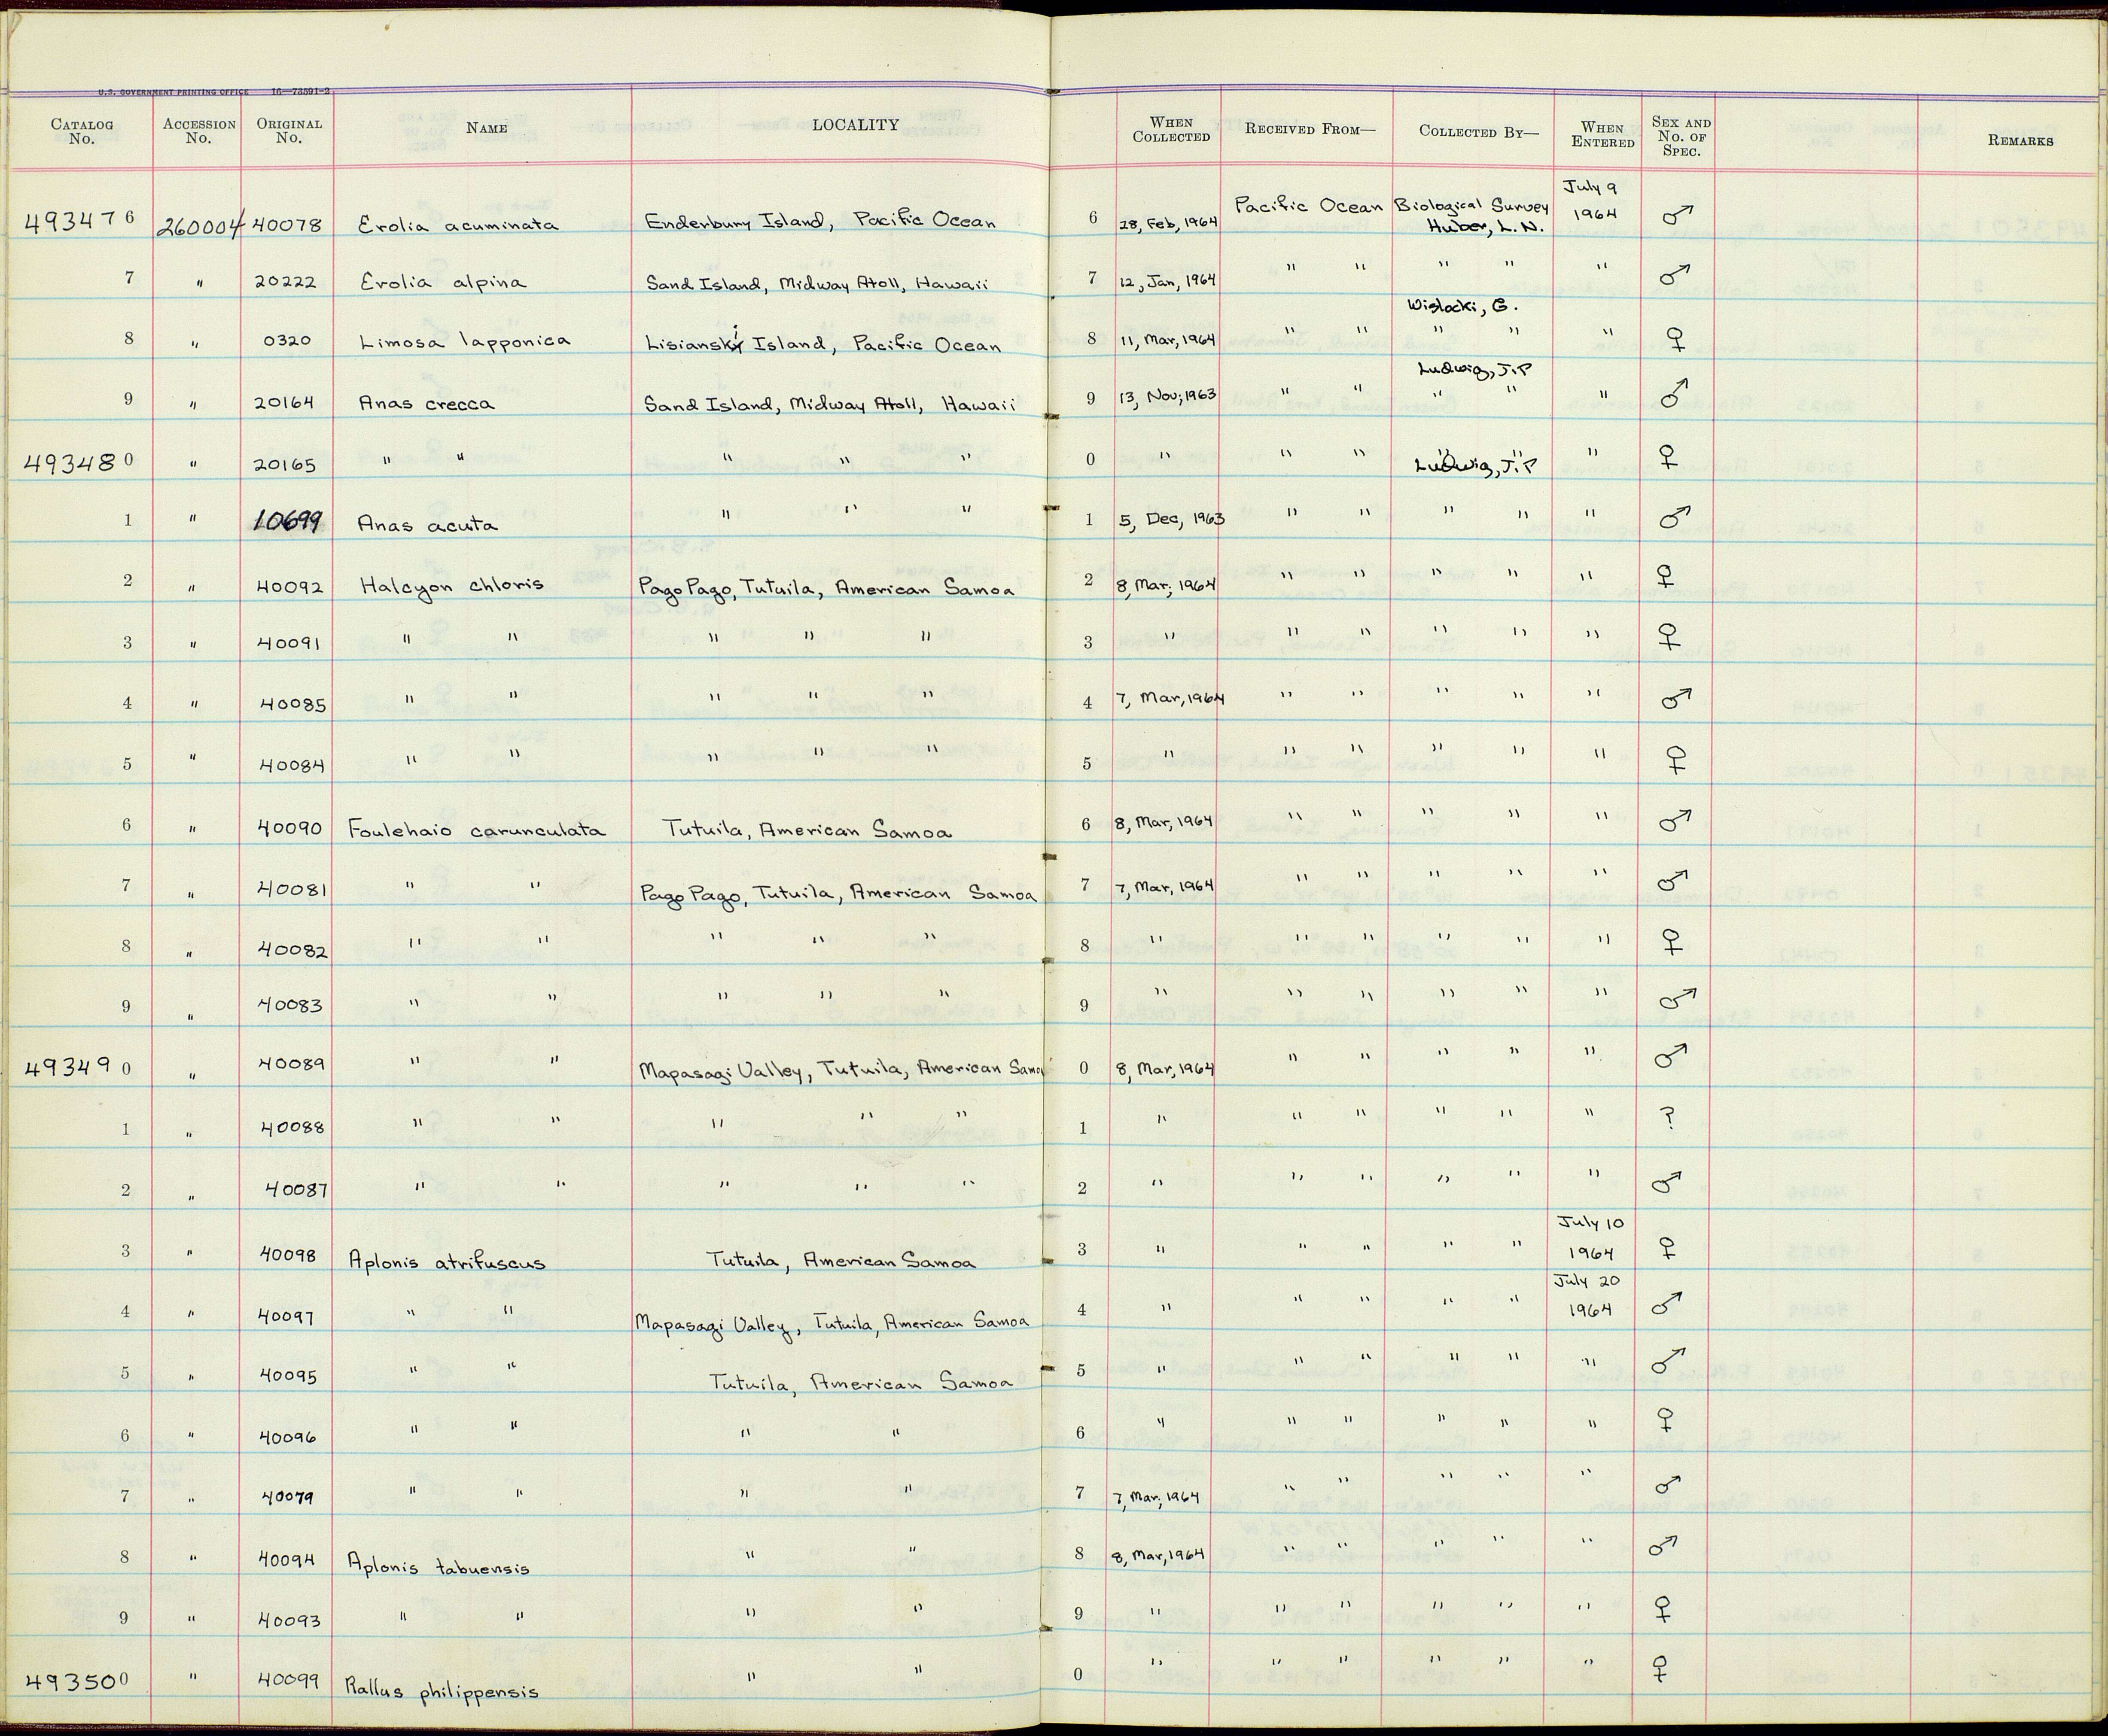 U.S. GOVERNMENT PRINTING OFFICE 16—73591-2
CATALOG No. ACCESSION No. ORIGINAL No. NAME LOCALITY WHEN COLLECTED RECEIVED FROM— COLLECTED BY— WHEN ENTERED SEX AND No. OF SPEC. REMARKS
493476 260004 40078 Erolia acuminata Enderbury Island, Pacific Ocean 6 28, Feb, 1964 Pacific Ocean Biological Survey Huber, L. N. July 9 1964 ♂
7 " 20222 Erolia alpina Sand Island, Midway Atoll, Hawaii 7 12, Jan, 1964 " " " " " ♂
Wislocki, G.
8 " 0320 Limosa lapponica Lisianski Island, Pacific Ocean 8 11, Mar, 1964 " " " " " ♀
Ludwig, J.P
9 " 20164 Anas crecca Sand Island, Midway Atoll, Hawaii 9 13, Nov, 1963 " " " " " ♂
493480 " 20165 " " " " " 0 " " " " " Ludwig, J.P " ♀
1 " 10699 Anas acuta " " " 1 5, Dec, 1963 " " " " " ♂
2 " 40092 Halcyon chloris Pago Pago, Tutuila, American Samoa 2 8, Mar, 1964 " " " " " ♀
3 " 40091 " " " " " 3 " " " " " " ♀
4 " 40085 " " " " " 4 7, Mar, 1964 " " " " " ♂
5 " 40084 " " " " " 5 " " " " " " ♀
6 " 40090 Foulehaio carunculata Tutuila, American Samoa 6 8, Mar, 1964 " " " " " ♂
7 " 40081 " " Pago Pago, Tutuila, American Samoa 7 7, Mar, 1964 " " " " " ♂
8 " 40082 " " " " " 8 " " " " " " ♀
9 " 40083 " " " " " 9 " " " " " " ♂
493490 " 40089 " " Mapasagi Valley, Tutuila, American Samoa 0 8, Mar, 1964 " " " " " ♂
1 " 40088 " " " " " 1 " " " " " " ?
2 " 40087 " " " " " 2 " " " " " " ♂
3 " 40098 Aplonis atrifuscus Tutuila, American Samoa 3 " " " " " July 10 1964 ♀
4 " 40097 " " Mapasagi Valley, Tutuila, American Samoa 4 " " " " " July 20 1964 ♂
5 " 40095 " " Tutuila, American Samoa 5 " " " " " " ♂
6 " 40096 " " " " 6 " " " " " " ♀
7 " 40079 " " " " 7 7, Mar, 1964 " " " " " ♂
8 " 40094 Aplonis tabuensis " " 8 8, Mar, 1964 " " " " " ♂
9 " 40093 " " " " 9 " " " " " " ♀
493500 " 40099 Rallus philippensis " " 0 " " " " " " ♀